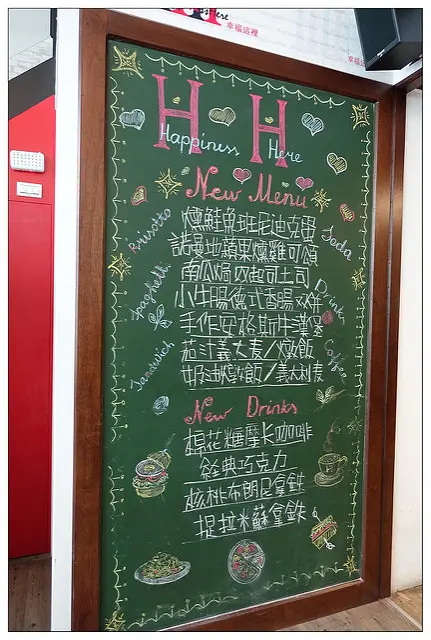 幸福這裡
H H
Happiness Here
New Menu
燻鮭魚班尼迪克蛋
諾曼地蘋果燻雞可頌
南瓜焗烤起司土司
小牛腸德式香腸
手作安格斯牛漢堡
茄汁義大麥/燉飯
奶油燉飯/義大利麵
Risotto
Spaghetti
Sandwich
Soda
Drink
Coffee
New Drinks
棉花糖摩卡咖啡
經典巧克力
核桃布朗尼拿鐵
提拉米蘇拿鐵